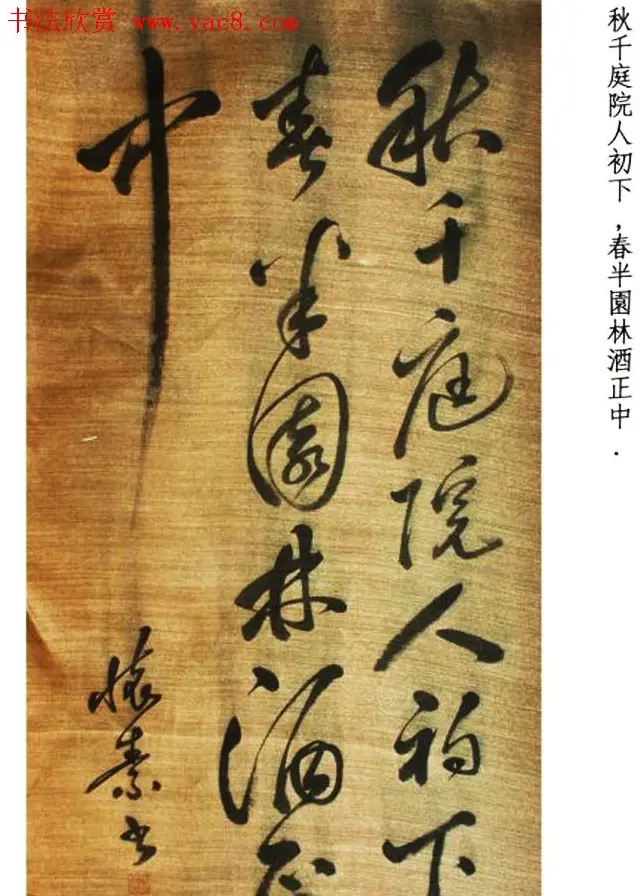 书法欣赏 www.yac8.com
秋千庭院人初下，春半園林酒正中．
秋千庭院人初下
春半園林酒正
中
懷素書